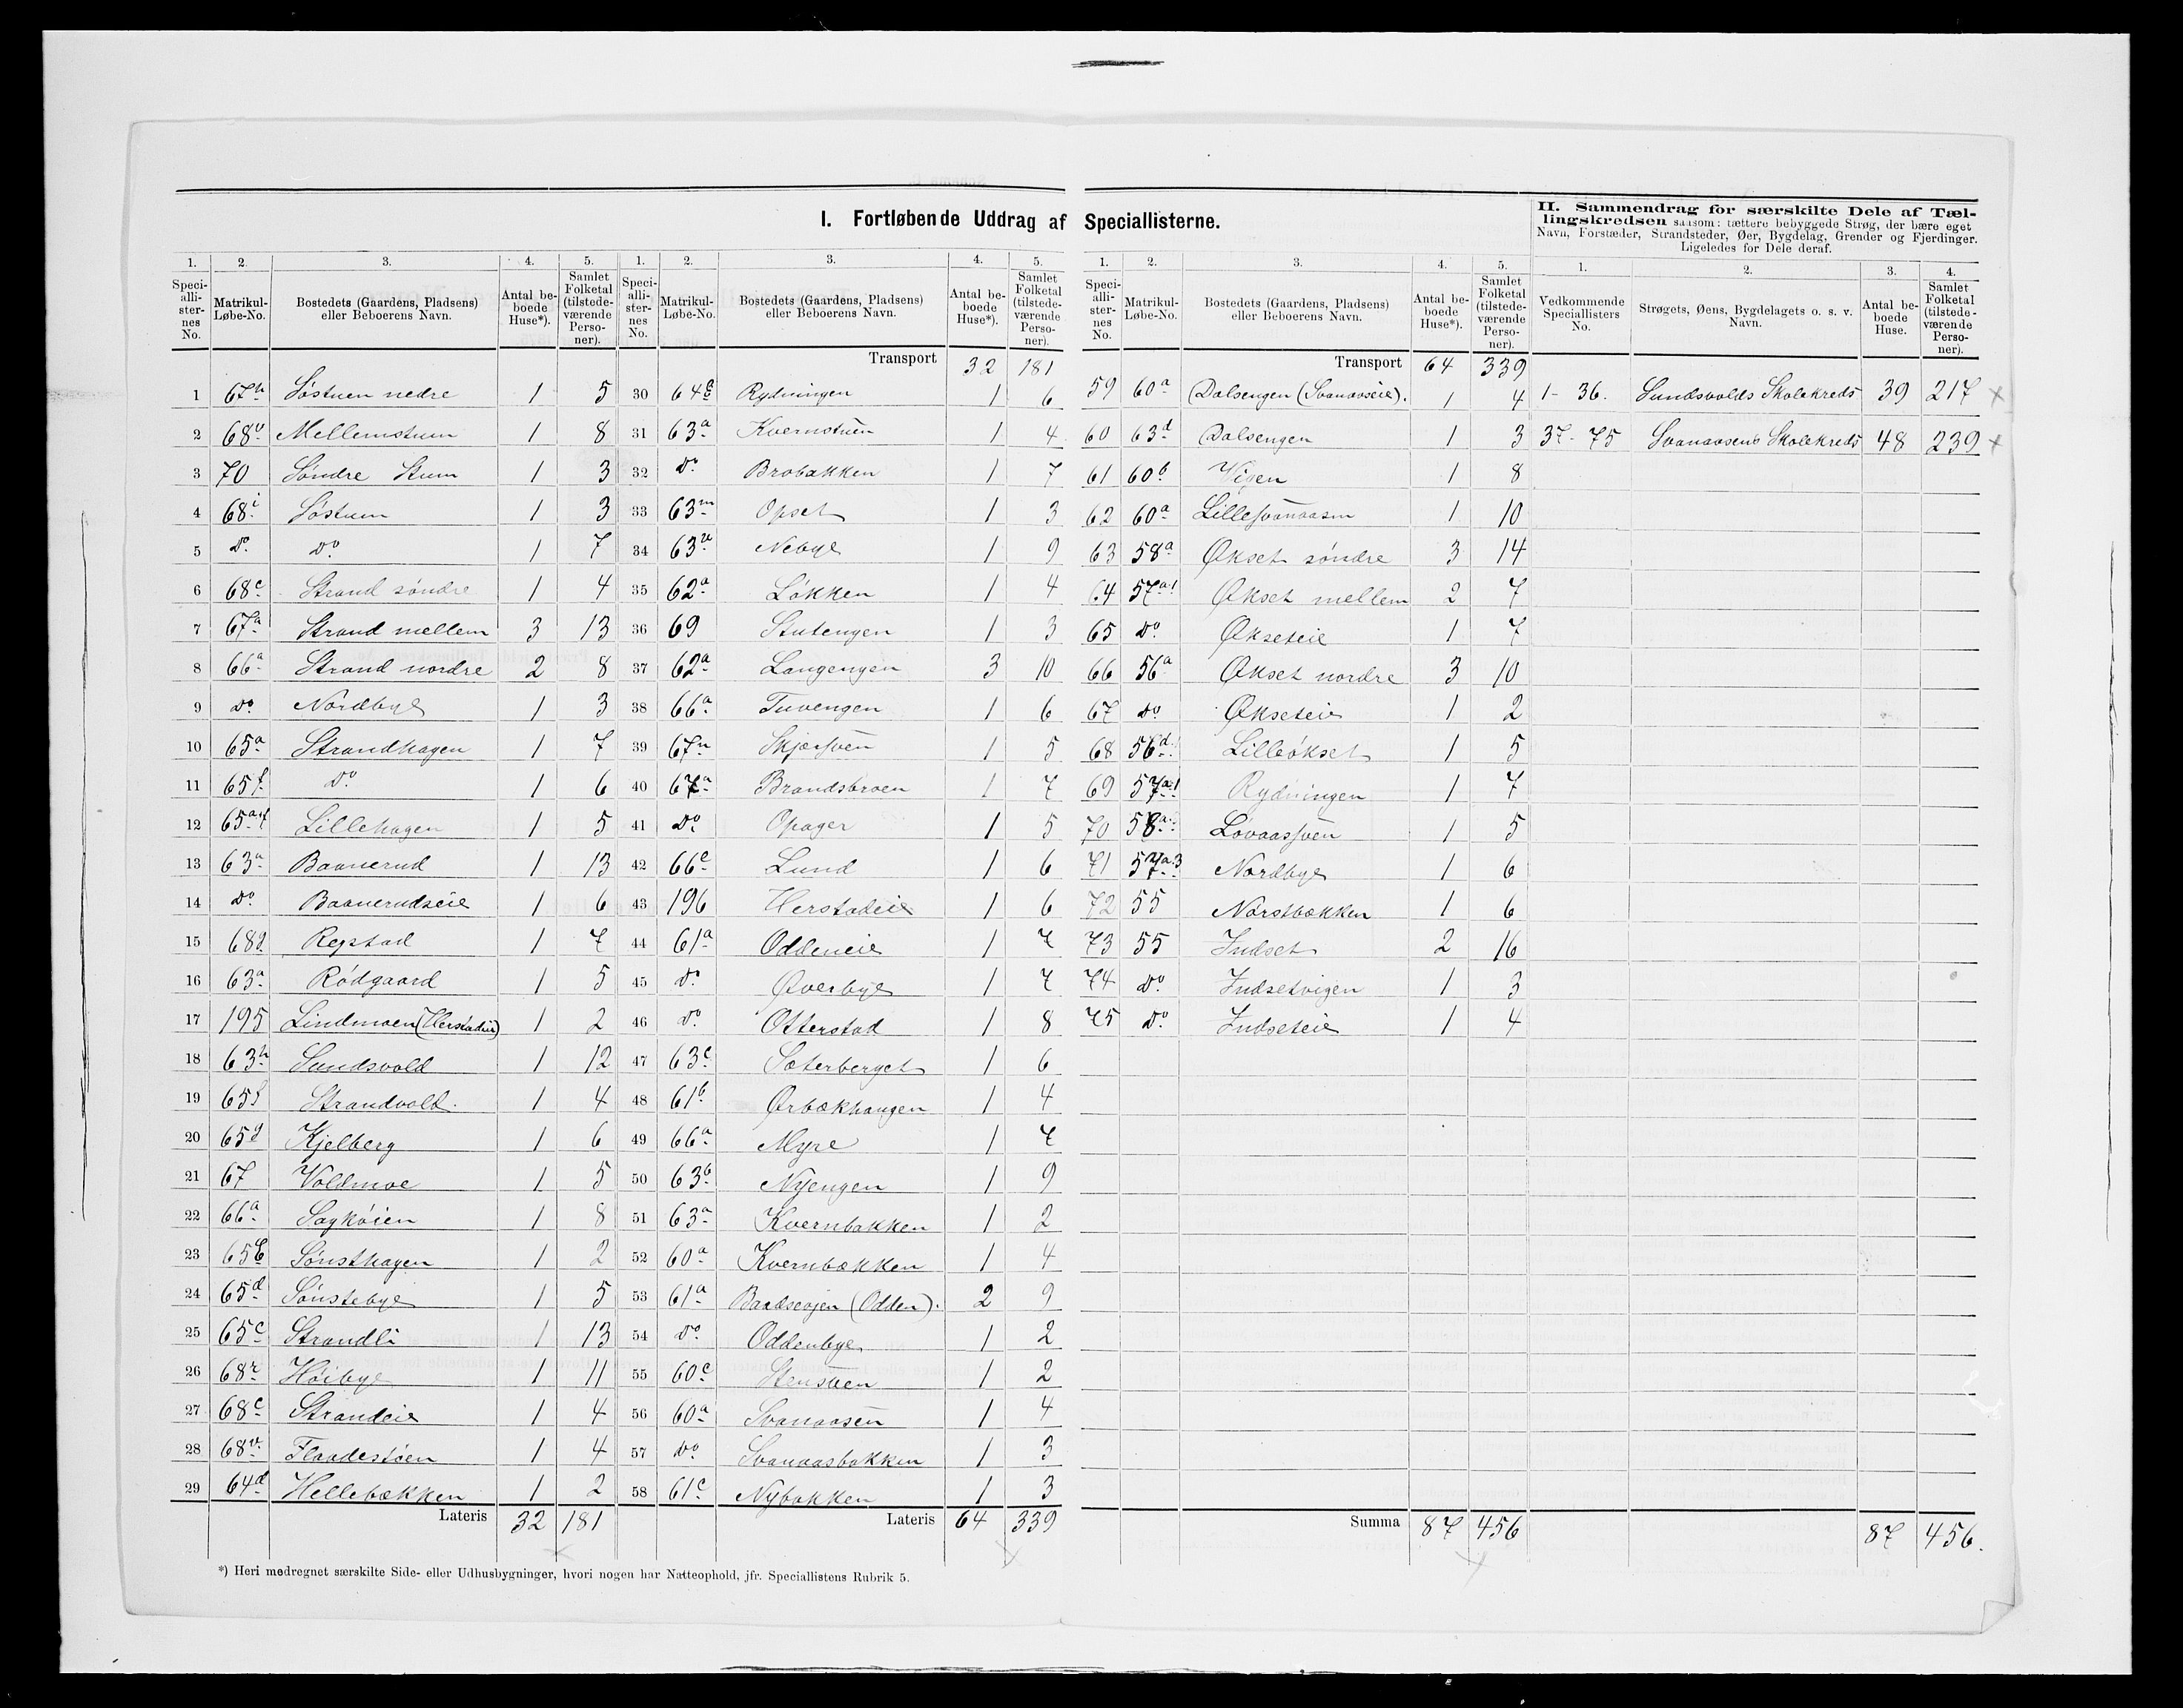 I. Fortløbende Uddrag af Speciallisterne.
II. Sammendrag for særskilte Dele af Tæl-
lingskredsen saasom: tættere bebyggede Strøg, der bære eget
Navn, Forstæder, Strandsteder, Øer, Bygdelag, Grender og Fjerdinger.
Ligeledes for Dele deraf.
1. 2. 3. 4. 5. 1. 2. 3. 4. 5. 1. 2. 3. 4. 5. 1. 2. 3. 4.
Speciallisternes No. Matrikul-Løbe-No. Bostedets (Gaardens, Pladsens) eller Beboerens Navn. Antal beboede Huse*). Samlet Folketal (tilstedeværende Personer).
Speciallisternes No. Matrikul-Løbe-No. Bostedets (Gaardens, Pladsens) eller Beboerens Navn. Antal beboede Huse*). Samlet Folketal (tilstedeværende Personer).
Speciallisternes No. Matrikul-Løbe-No. Bostedets (Gaardens, Pladsens) eller Beboerens Navn. Antal beboede Huse*). Samlet Folketal (tilstedeværende Personer).
Vedkommende Speciallisters No. Strøgets, Øens, Bygdelagets o. s. v. Navn. Antal beboede Huse. Samlet Folketal (tilstedeværende Personer).
1 67h Søstuen nedre 1 5
2 68v Mellemstum 1 8
3 70 Søndre Stum 1 3
4 68i Søstum 1 3
5 do do 1 7
6 68c Strand søndre 1 4
7 67a Strand mellem 3 13
8 66a Strand nordre 2 8
9 do Nordbye 1 3
10 65a Strandhagen 1 7
11 65f do 1 6
12 65a+f Lillehagen 1 5
13 63a Baanerud 1 13
14 do Baanerudseie 1 6
15 68g Repstad 1 7
16 63a Rødgaard 1 5
17 195 Lindmoen (Herstadeie) 1 2
18 63h Sundsvold 1 12
19 65f Strandvold. 1 4
20 65g Kjelberg 1 6
21 67 Voldmoe 1 5
22 66a Sagkøien 1 8
23 65 Sønsthagen 1 2
24 65d Sønstebye 1 5
25 65c Strandli 1 13
26 68r Høibye 1 11
27 68c Strandeie 1 4
28 68v Flaadestøen 1 4
29 64d Hellebækken 1 2
Lateris 32 181
Transport 32 181
30 64 Rydningen 1 6
31 63a Kvernstuen 1 4
32 do Brobakken 1 7
33 63m Opset 1 3
34 63n Nebye 1 9
35 62a Løkken 1 4
36 69 Stutengen 1 3
37 62a Langengen 3 10
38 66a Tuvengen 1 6
39 67n Skjørsven 1 5
40 67a Brandsbroen 1 7
41 do Opager 1 5
42 66e Lund 1 6
43 196 Herstadeie 1 6
44 61a Oddeneie 1 7
45 do Øverbye 1 7
46 do Otterstad 1 8
47 63c Sæterberget 1 6
48 61b Ørbækhaugen 1 4
49 66a Myre 1 7
50 63b Nyengen 1 9
51 63a Kvernbakken 1 2
52 60a Kvernbækken 1 4
53 61a (Odden). 2 9
54 do Oddenbye 1 2
55 60c Stenstuen 1 2
56 60a Svanaasen 1 4
57 do Svanaasbakken 1 3
58 61c Nybakken 1 3
Lateris 64 339
Transport 64 339
59 60a Dalsengen (Svanaaseie). 1 4
60 63d Dalsengen 1 3
61 60b Vigen 1 8
62 60a Lillesvanaasen 1 10
63 58a Økset søndre 3 14
64 57a1 Økset mellem 2 7
65 do Økseteie 1 7
66 56a Økset nordre 3 10
67 do Økseteie 1 2
68 56d Lilleøkset 1 5
69 57a1 Rydningen 1 7
70 58a Løvaassven 1 5
71 57a3 Nordbye 1 6
72 55 Nørstbækken 1 6
73 55 Indset 2 16
74 do Indsetvigen 1 3
75 do Indseteie 1 4
Summa 87 456
1-36. Sundsvolds Skolekreds 39 217 ×
37-75 Svanaasens Skolekreds 48 239 ×
87 456.
*) Heri medregnet særskilte Side- eller Udhusbygninger, hvori nogen har Natteophold, jfr. Speciallistens Rubrik 5.